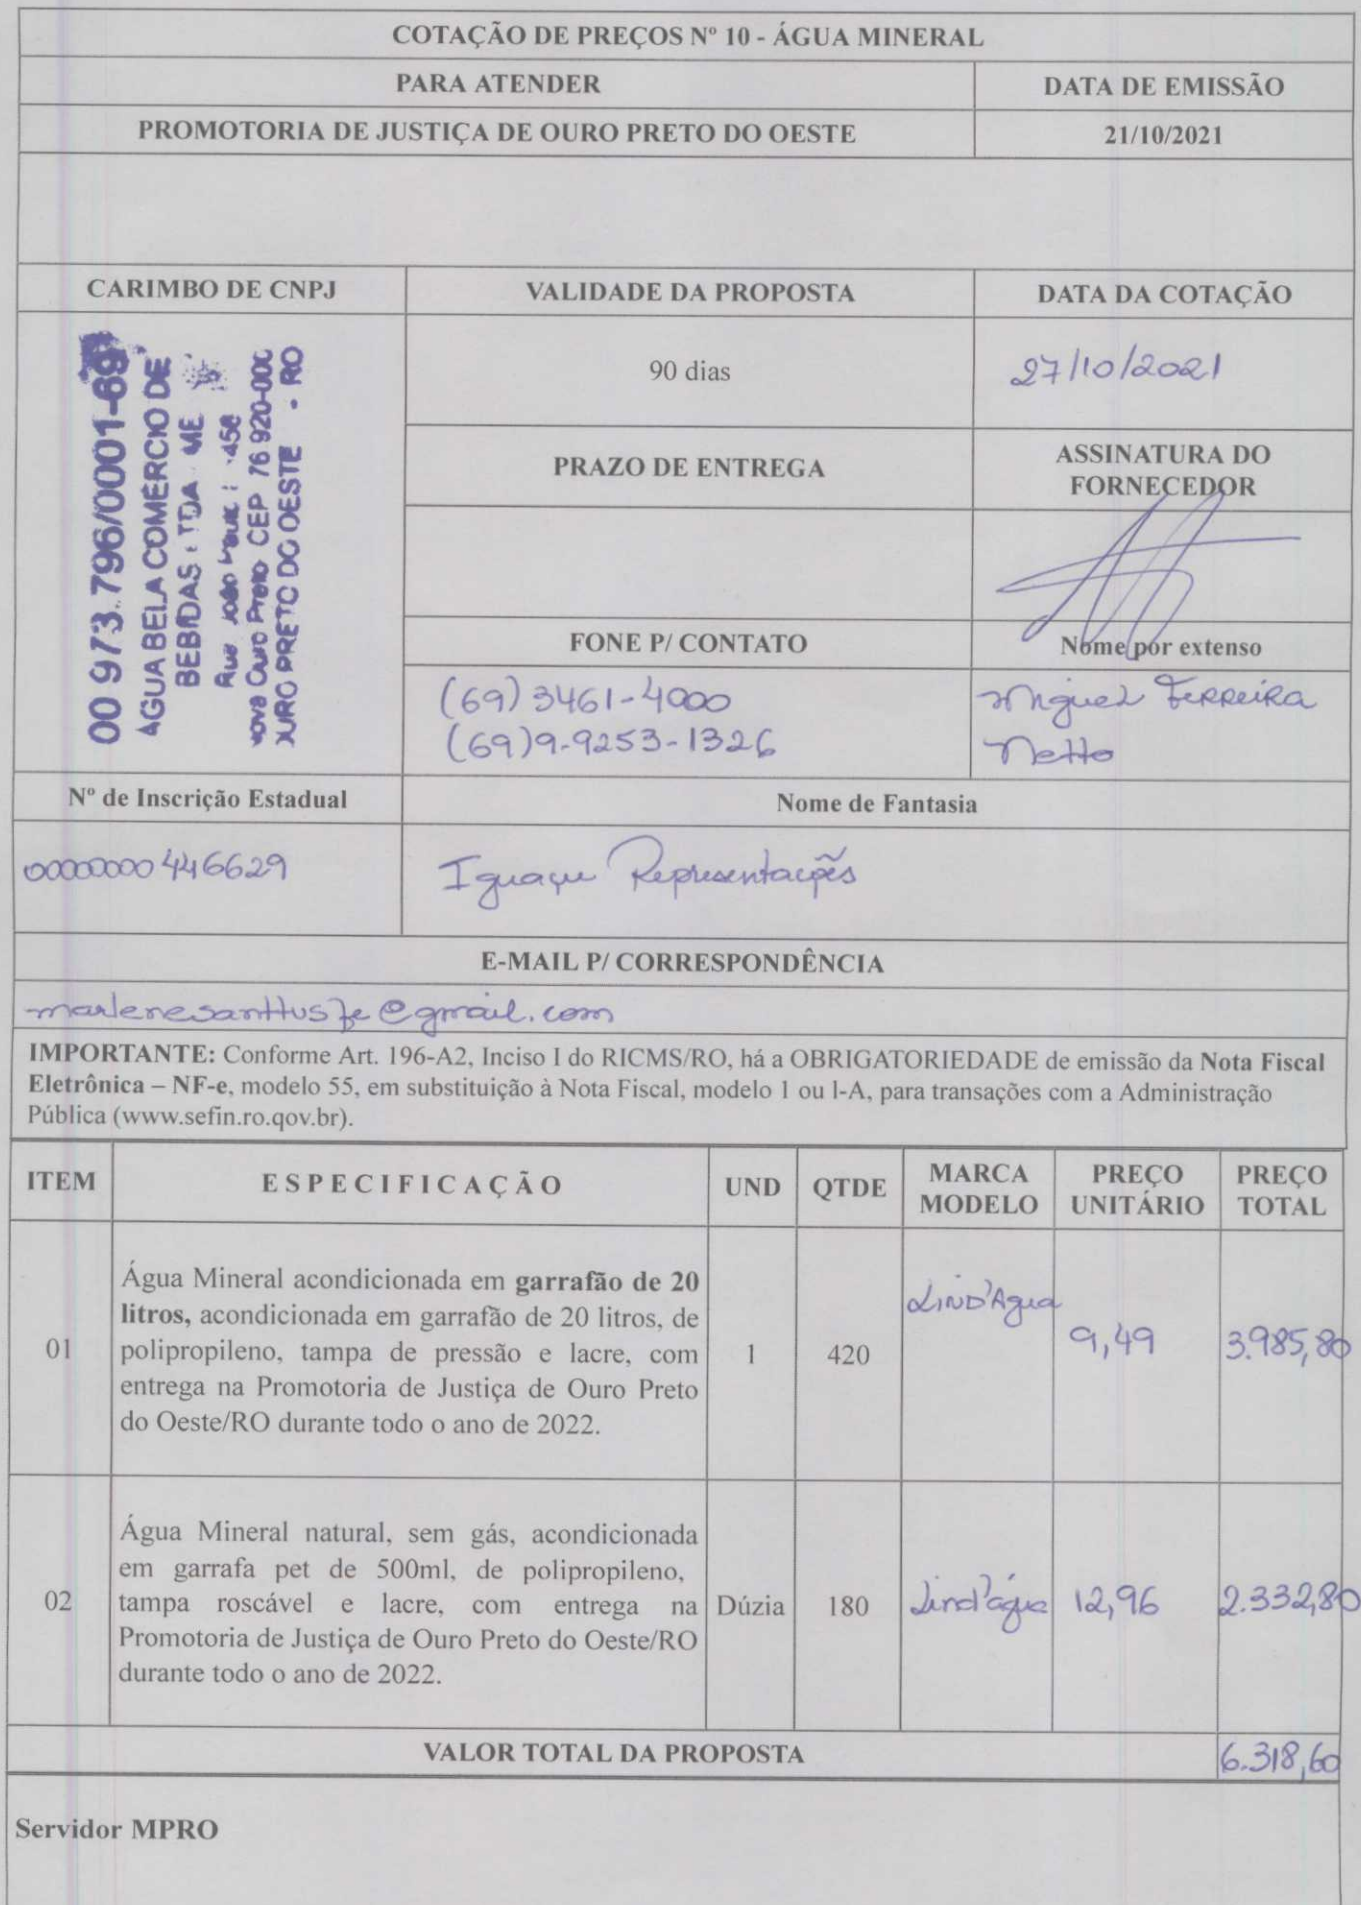 COTAÇÃO DE PREÇOS Nº 10 - ÁGUA MINERAL
PARA ATENDER
DATA DE EMISSÃO
PROMOTORIA DE JUSTIÇA DE OURO PRETO DO OESTE
21/10/2021
CARIMBO DE CNPJ
VALIDADE DA PROPOSTA
DATA DA COTAÇÃO
00 973.796/0001-69
AGUA BELA COMÉRCIO DE
BEBIDAS LTDA ME
Rua João
Ouro Preto CEP 76 920-000
OURO PRETO DO OESTE - RO
90 dias
27/10/2021
PRAZO DE ENTREGA
ASSINATURA DO
FORNECEDOR
FONE P/ CONTATO
Nome por extenso
(69) 3461-4000
(69) 9-9253-1326
Miguel Ferreira
Netto
Nº de Inscrição Estadual
Nome de Fantasia
0000000446629
Iguaçu Representações
E-MAIL P/ CORRESPONDÊNCIA
@gmail.com
IMPORTANTE: Conforme Art. 196-A2, Inciso I do RICMS/RO, há a OBRIGATORIEDADE de emissão da Nota Fiscal
Eletrônica – NF-e, modelo 55, em substituição à Nota Fiscal, modelo 1 ou l-A, para transações com a Administração
Pública (www.sefin.ro.qov.br).
ITEM
ESPECIFICAÇÃO
UND
QTDE
MARCA
MODELO
PREÇO
UNITÁRIO
PREÇO
TOTAL
01
Água Mineral acondicionada em garrafão de 20
litros, acondicionada em garrafão de 20 litros, de
polipropileno, tampa de pressão e lacre, com
entrega na Promotoria de Justiça de Ouro Preto
do Oeste/RO durante todo o ano de 2022.
1
420
LIND'Agua
9,49
3.985,80
02
Água Mineral natural, sem gás, acondicionada
em garrafa pet de 500ml, de polipropileno,
tampa roscável e lacre, com entrega na
Promotoria de Justiça de Ouro Preto do Oeste/RO
durante todo o ano de 2022.
Dúzia
180
Lind'água
12,96
2.332,80
VALOR TOTAL DA PROPOSTA
6.318,60
Servidor MPRO